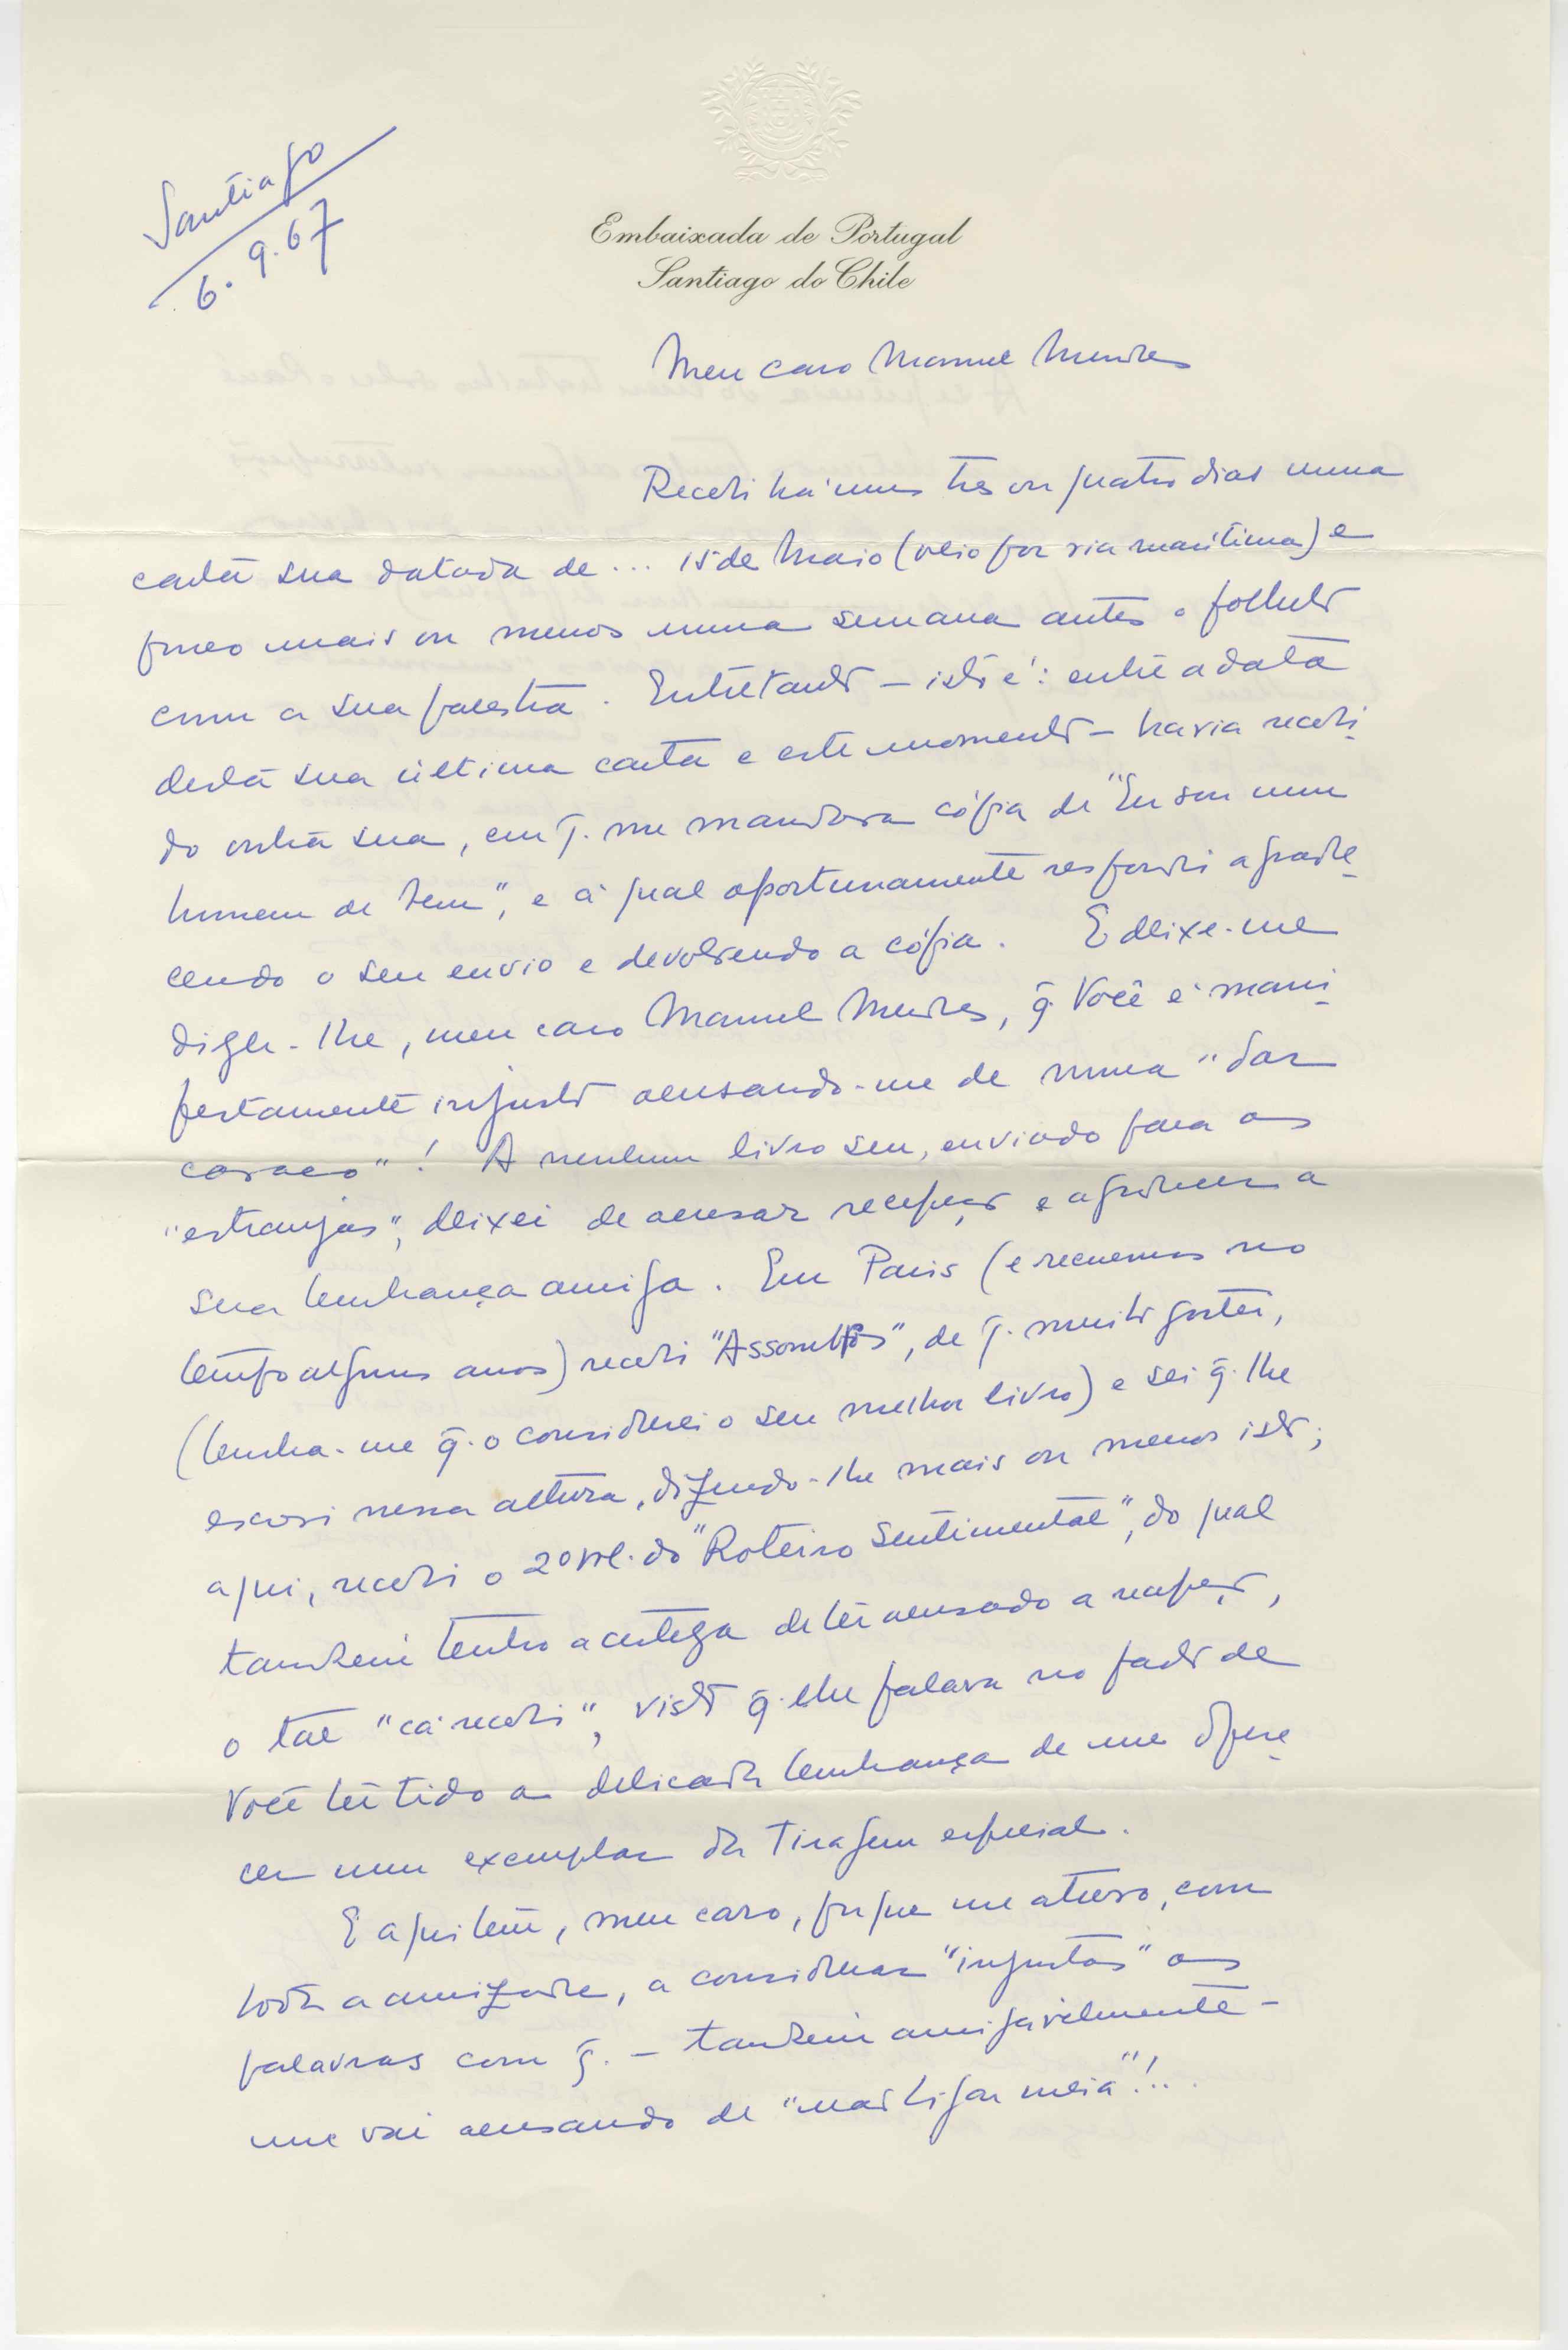 Santiago
6.9.67
Embaixada de Portugal
Santiago do Chile
Meu caro Manuel Mendes
Recebi há uns tres ou quatro dias uma
carta sua datada de ... 15 de Maio (veio por via marítima) e
pouco mais ou menos uma semana antes o folheto
com a sua palestra. Entretanto – isto é: entre a data
desta sua última carta e este momento – havia recebi
do outra sua, em q. me mandava cópia de "Eu sou um
homem de bem", e à qual oportunamente respondi agrade
cendo o seu envio e devolvendo a cópia. E deixe-me
dizer-lhe, meu caro Manuel Mendes, q. Você é mani
festamente injusto acusando-me de nunca "dar
cavaco"! A nenhum livro seu, enviado para as
"estranjas", deixei de acusar recepção e agradecer a
sua lembrança amiga. Em Paris (e recuemos no
tempo alguns anos) recebi "Assombros", de q. muito gostei,
(lembra-me q. o considerei o seu melhor livro) e sei q. lhe
escrevi nessa altura, dizendo-lhe mais ou menos isto;
aqui, recebi o 2º vol. do "Roteiro Sentimental", do qual
também tenho a certeza de ter acusado a recepção,
o tal "cá recebi", visto q. lhe falava no facto de
Você ter tido a delicada lembrança de me ofere
cer um exemplar da tiragem especial.
E aqui tem, meu caro, porque me atrevo, com
toda a amizade, a considerar "injustas" as
palavras com q. – também amigavelmente –
me vai acusando de "não ligar meia"!...